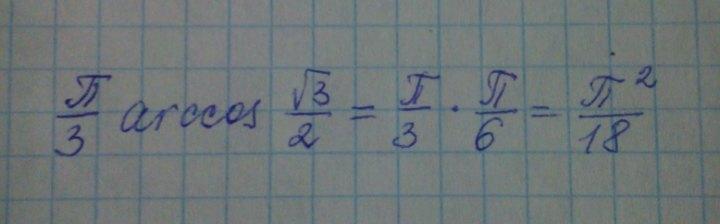 π/3 arccos √3/2 = π/3 · π/6 = π²/18